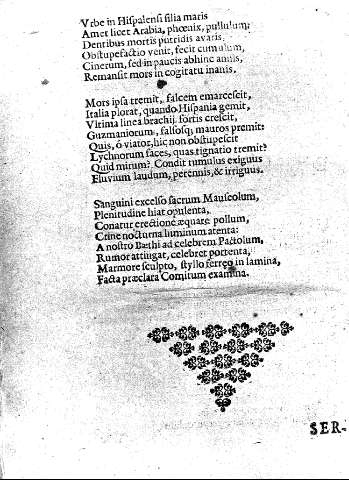 Vrbe in Hispalensi filia maris
Amet licet Arabia, phœnix, pullulum?
Dentibus mortis putridis avaris,
Obstupefactio venit, fecit cumulum,
Cinerum, sed in paucis abhinc annis,
Remansit mors in cogitatu inanis.
Mors ipsa tremit, falcem emarcescit,
Italia plorat, quando Hispania gemit,
Vltima linea brachij fortis crescit,
Guzmaniorum, falsosq; mauros premit?
Quis, ó viator, hic non obstupescit
Lychnorum faces, quas tignatio tremit?
Quid mirum? Condit tumulus exiguus
Fluvium laudum, perennis, & irriguus.
Sanguini excelso sacrum Mausolum,
Plenitudine hiat opulenta,
Conatur erectione æquare pollum,
Crine nocturna luminum atenta:
A nostro Bæthi ad celebrem Pactolum,
Rumor attingat, celebret portenta,
Marmore sculpto, stylo ferreo in lamina,
Facta præclara Comitum examina.
SER-